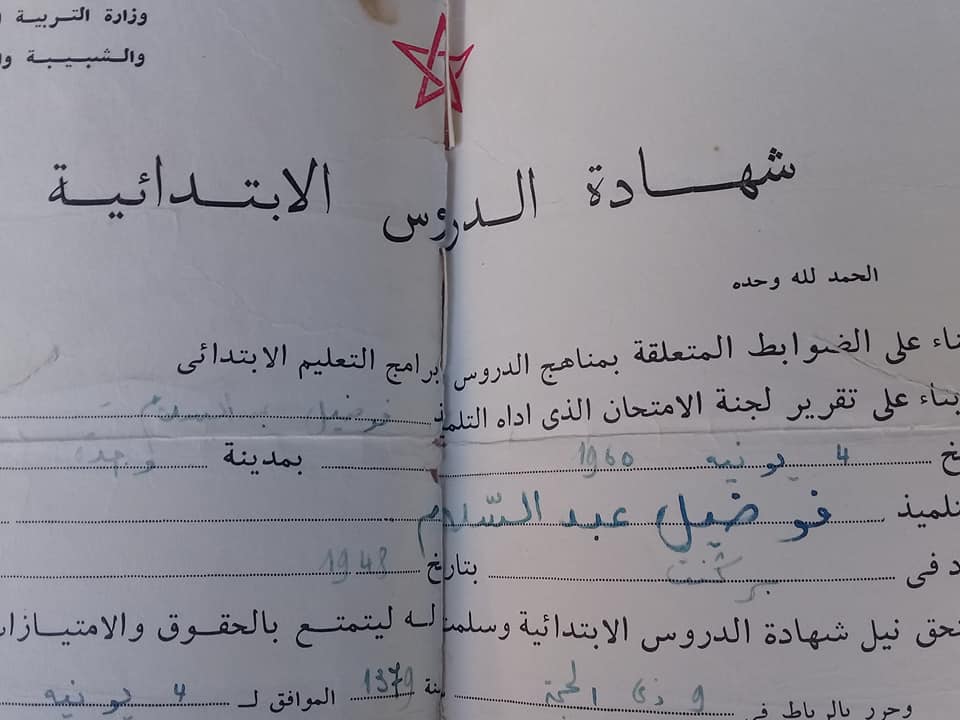 وزارة التربية
والشبيبة
شهادة الدروس الابتدائية
الحمد لله وحده
ناء على الضوابط المتعلقة بمناهج الدروس وبرامج التعليم الابتدائى
بناء على تقرير لجنة الامتحان الذى اداه التلميذ فوضيل عبد السلام
خ 4 يونيه 1960 بمدينة وجدة
تلميذ فوضيل عبد السّلام
د فى بركنت بتاريخ 1948
تحق نيل شهادة الدروس الابتدائية وسلمت له ليتمتع بالحقوق والامتيازات
وحرر بالرباط فى 9 ذى الحجة سنة 1379 الموافق لـ 4 يونيه